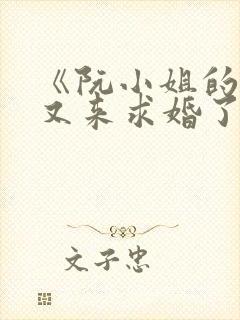 《阮小姐的
又来求婚了
文子忠